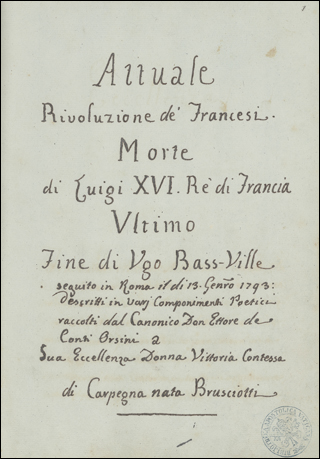 Attuale
Rivoluzione de' Francesi.
Morte
di Luigi XVI. Rè di Francia
Ultimo
Fine di Ugo Bass-Ville
seguito in Roma il dì 13. Genro 1793:
descritti in varj Componimenti Poetici
raccolti dal Canonico Don Ettore de
Conti Orsini a
Sua Eccellenza Donna Vittoria Contessa
di Carpegna nata Brusciotti